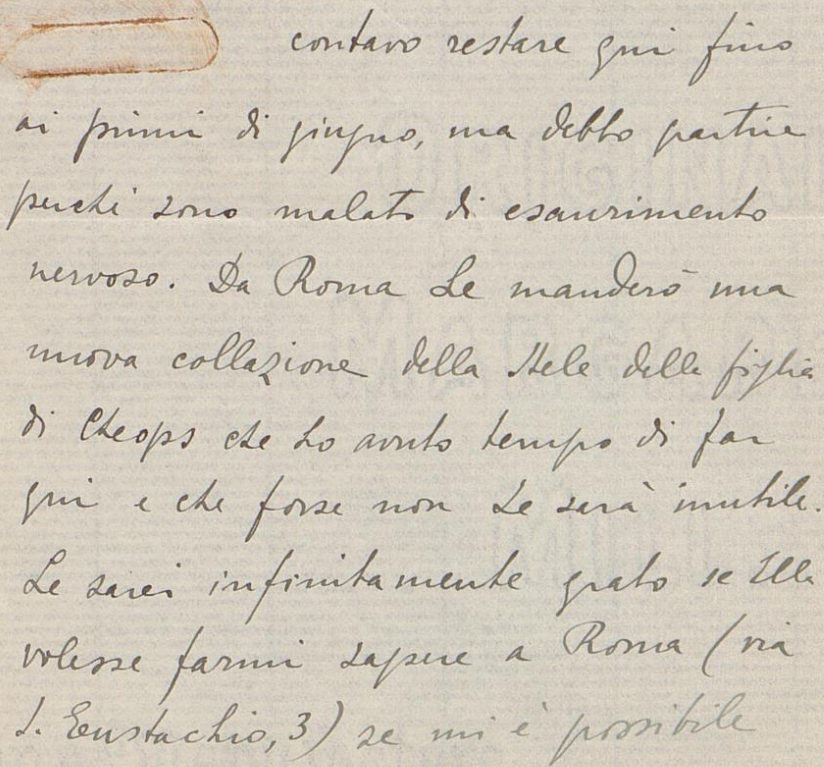 contavo restare qui fino
ai primi di giugno, ma debbo partire
perché sono malato di esaurimento
nervoso. Da Roma Le manderò una
nuova collazione della Stele della figlia
di Cheops che ho avuto tempo di far
qui e che forse non Le sarà inutile.
Le sarei infinitamente grato se Ella
volesse farmi sapere a Roma (via
S. Eustachio, 3) se mi è possibile